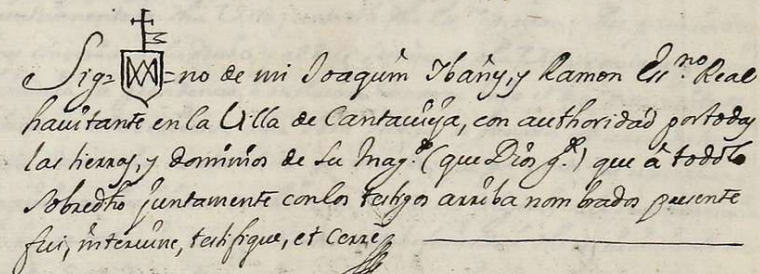 Sig= =no de mi Joaquin Ybañy, y Ramon Ess.no Real
havitante en la Villa de Cantavieja, con authoridad por todas
las tierras, y dominios de Su Mag.d (que Dios g.e) que â todo lo
Sobredho juntamente con los testigos arriba nombrados presente
fui, intervine, testifique, et Cerre